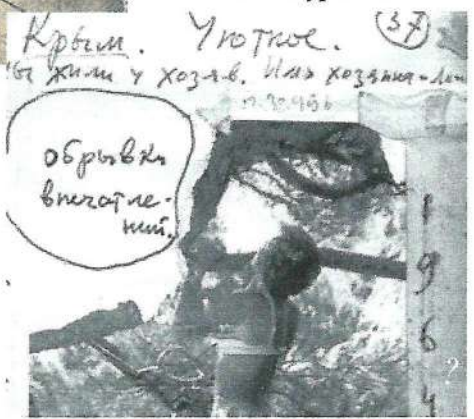 Крым. Уютное. 37
жили у хозяв. Имя хозяина
обрывки
впечатле-
ний.
1
9
6
4
?